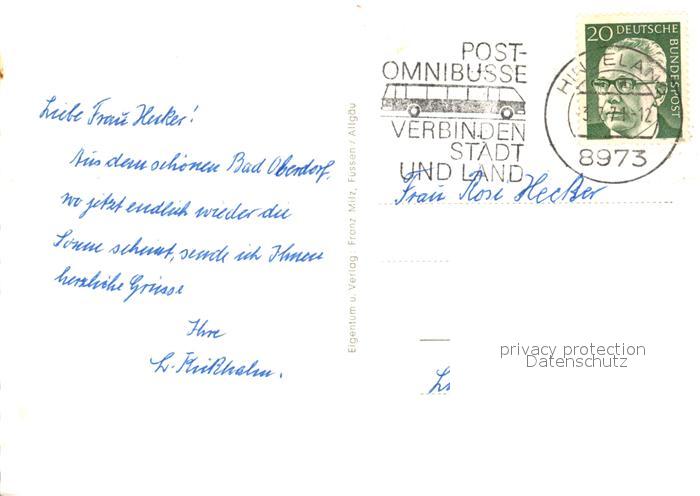 Liebe Frau Hecker!
Aus dem schönen Bad Oberdorf,
wo jetzt endlich wieder die
Sonne scheint, sende ich Ihnen
herzliche Grüsse
Ihre
Eigentum u. Verlag Franz Milz, Füssen / Allgäu
POST-
OMNIBUSSE
VERBINDEN
STADT
UND LAND
20 DEUTSCHE
BUNDESPOST
8973
Frau Rose Hecker
privacy protection
Datenschutz